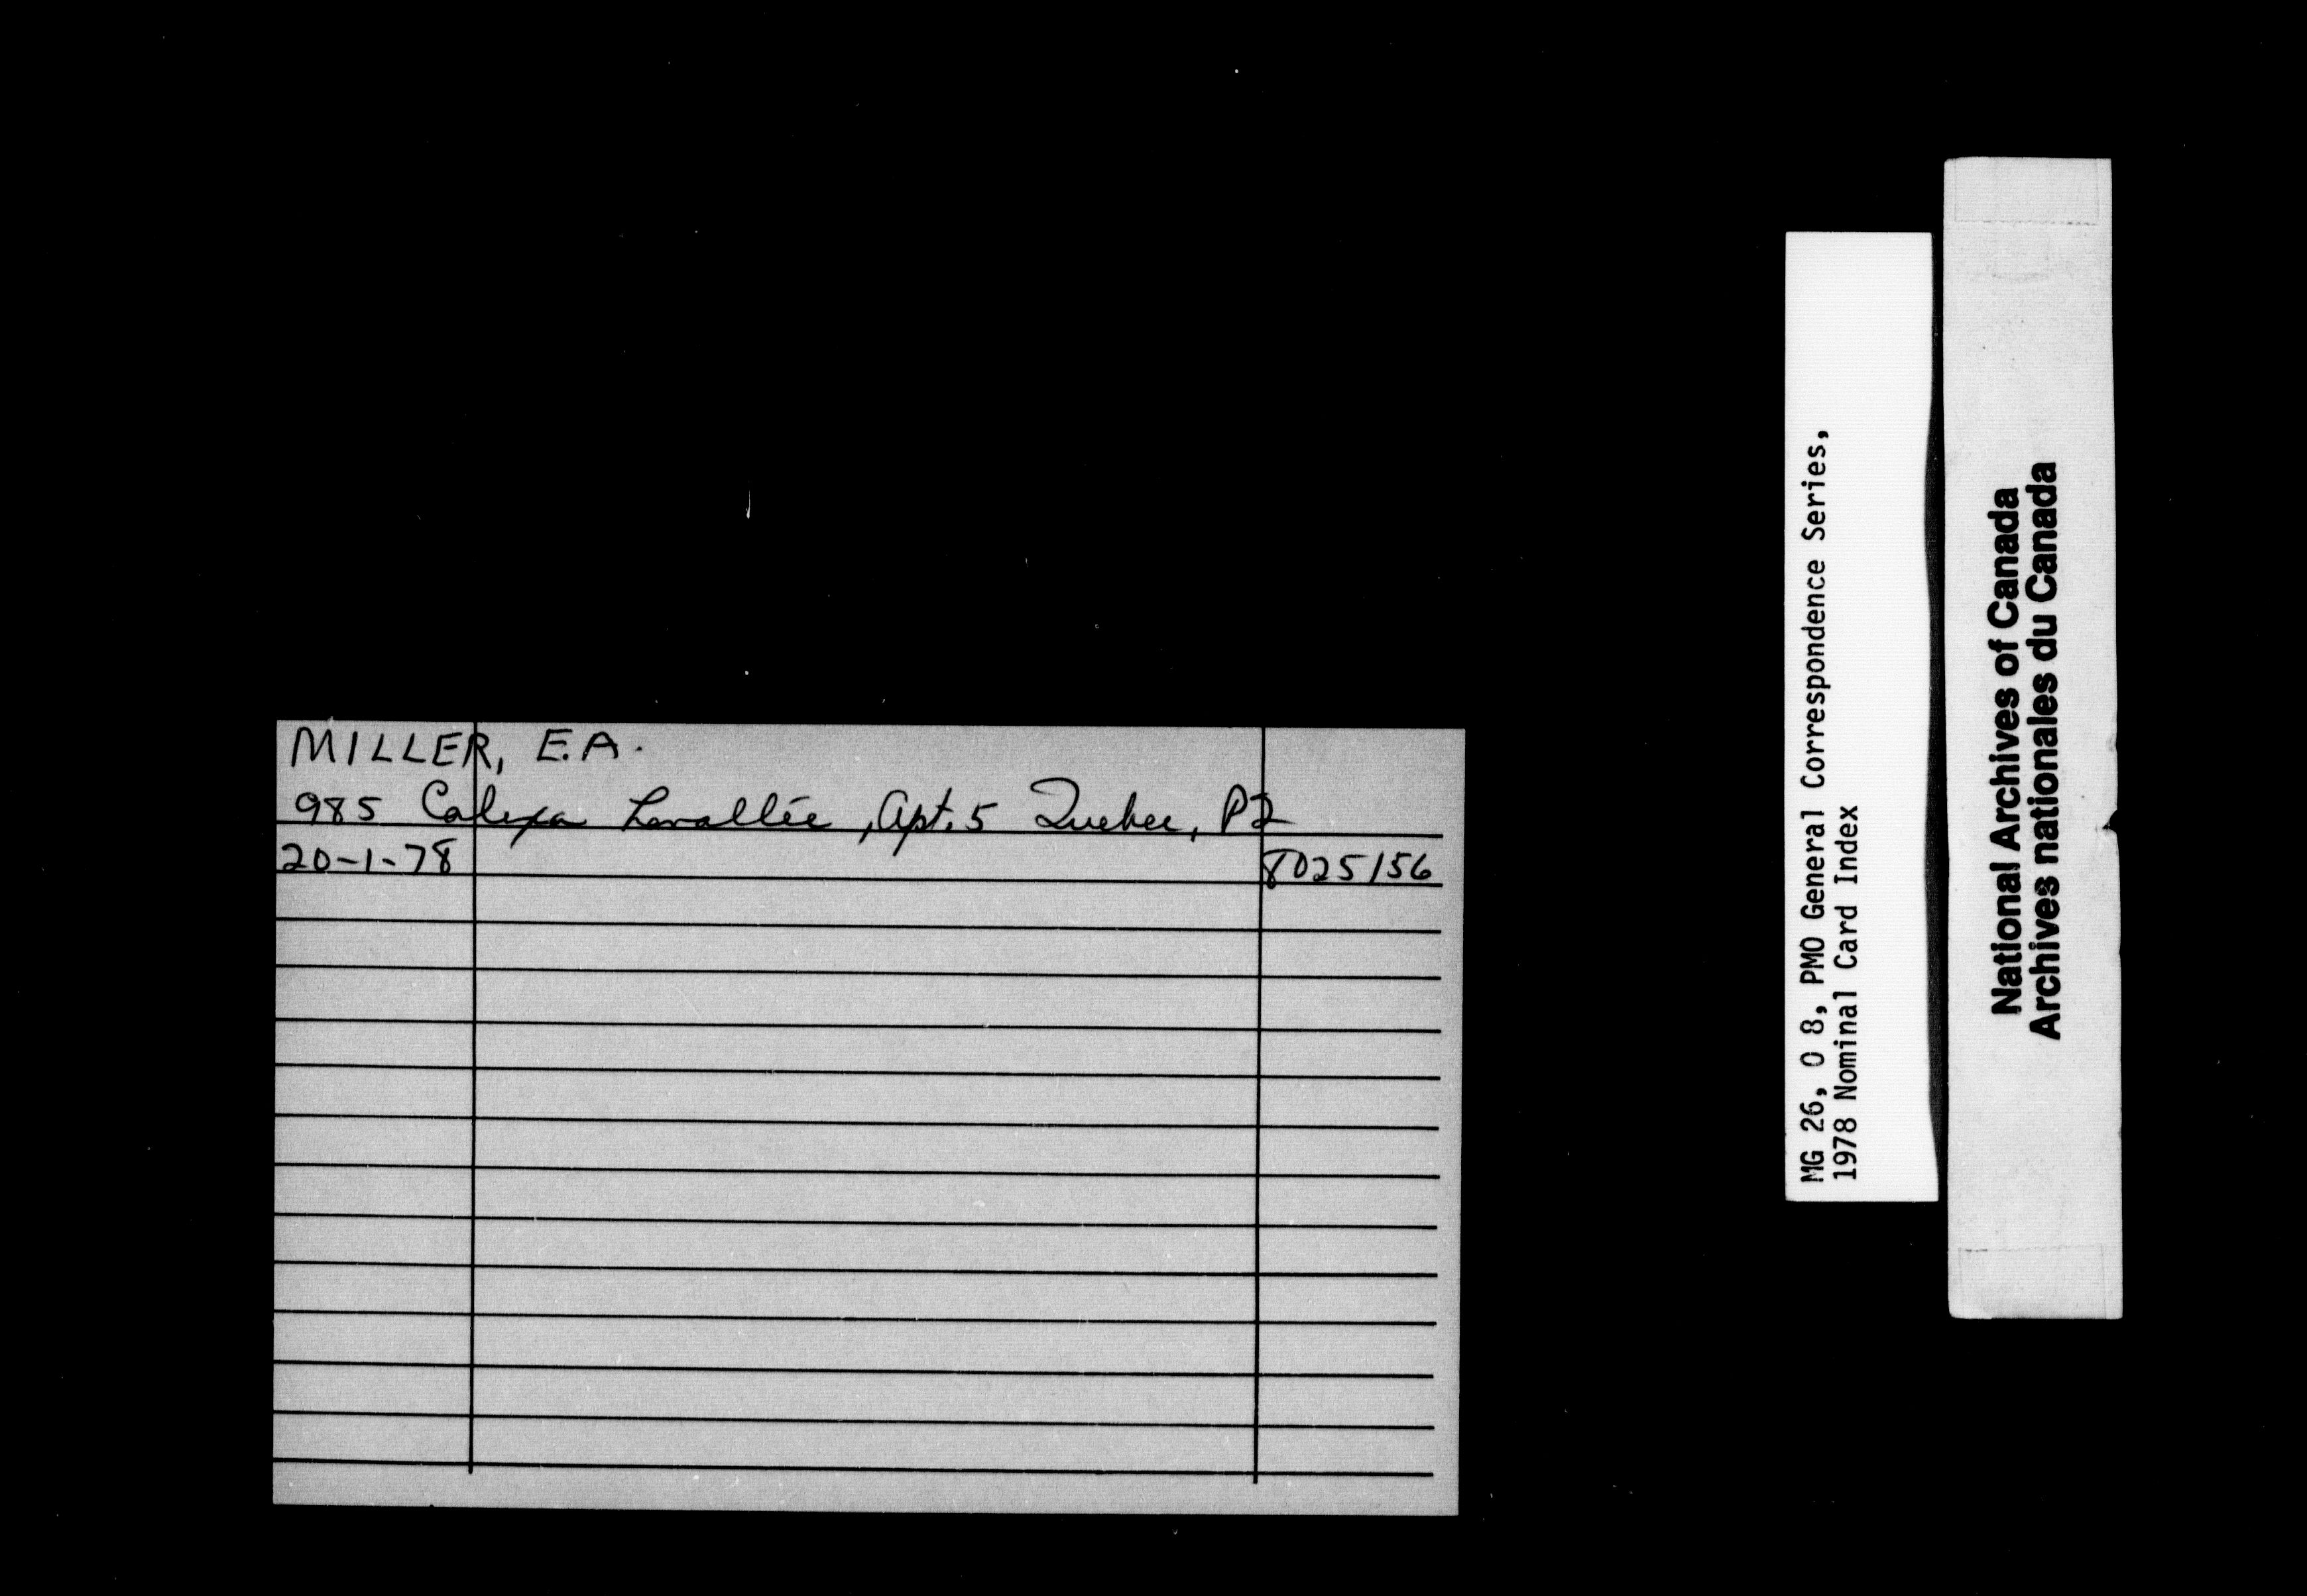 MILLER, E.A.
985 Calixa Lavallée, Apt. 5 Quebec, PQ
20-1-78 8025156
MG 26, O 8, PMO General Correspondence Series,
1978 Nominal Card Index
National Archives of Canada
Archives nationales du Canada